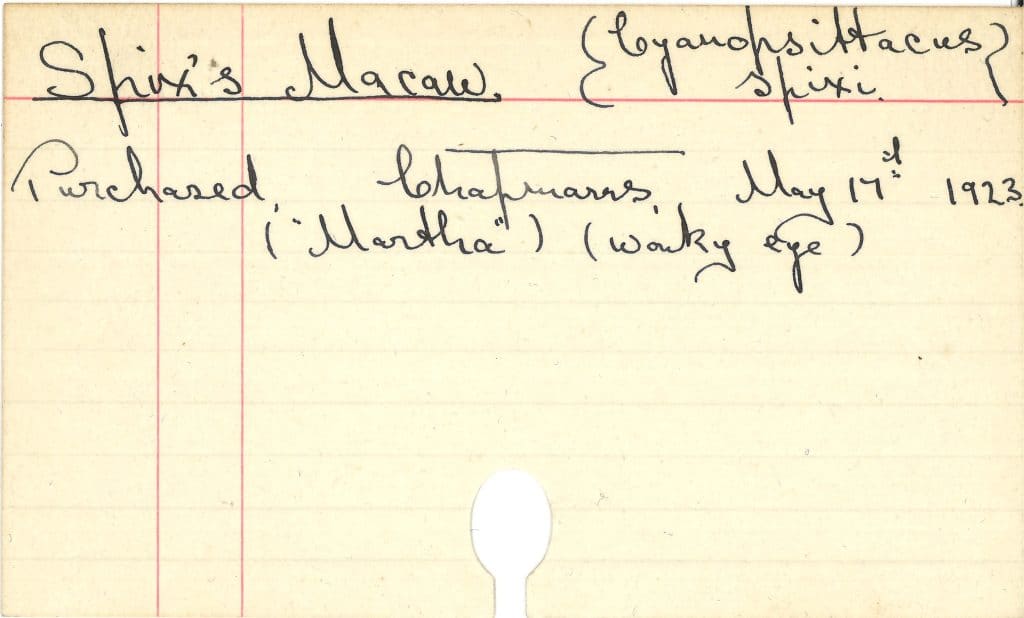 Spix's Macaw. {Cyanopsittacus
spixi.}
Purchased, Chapmans, May 17th 1923.
("Martha") (wonky eye)